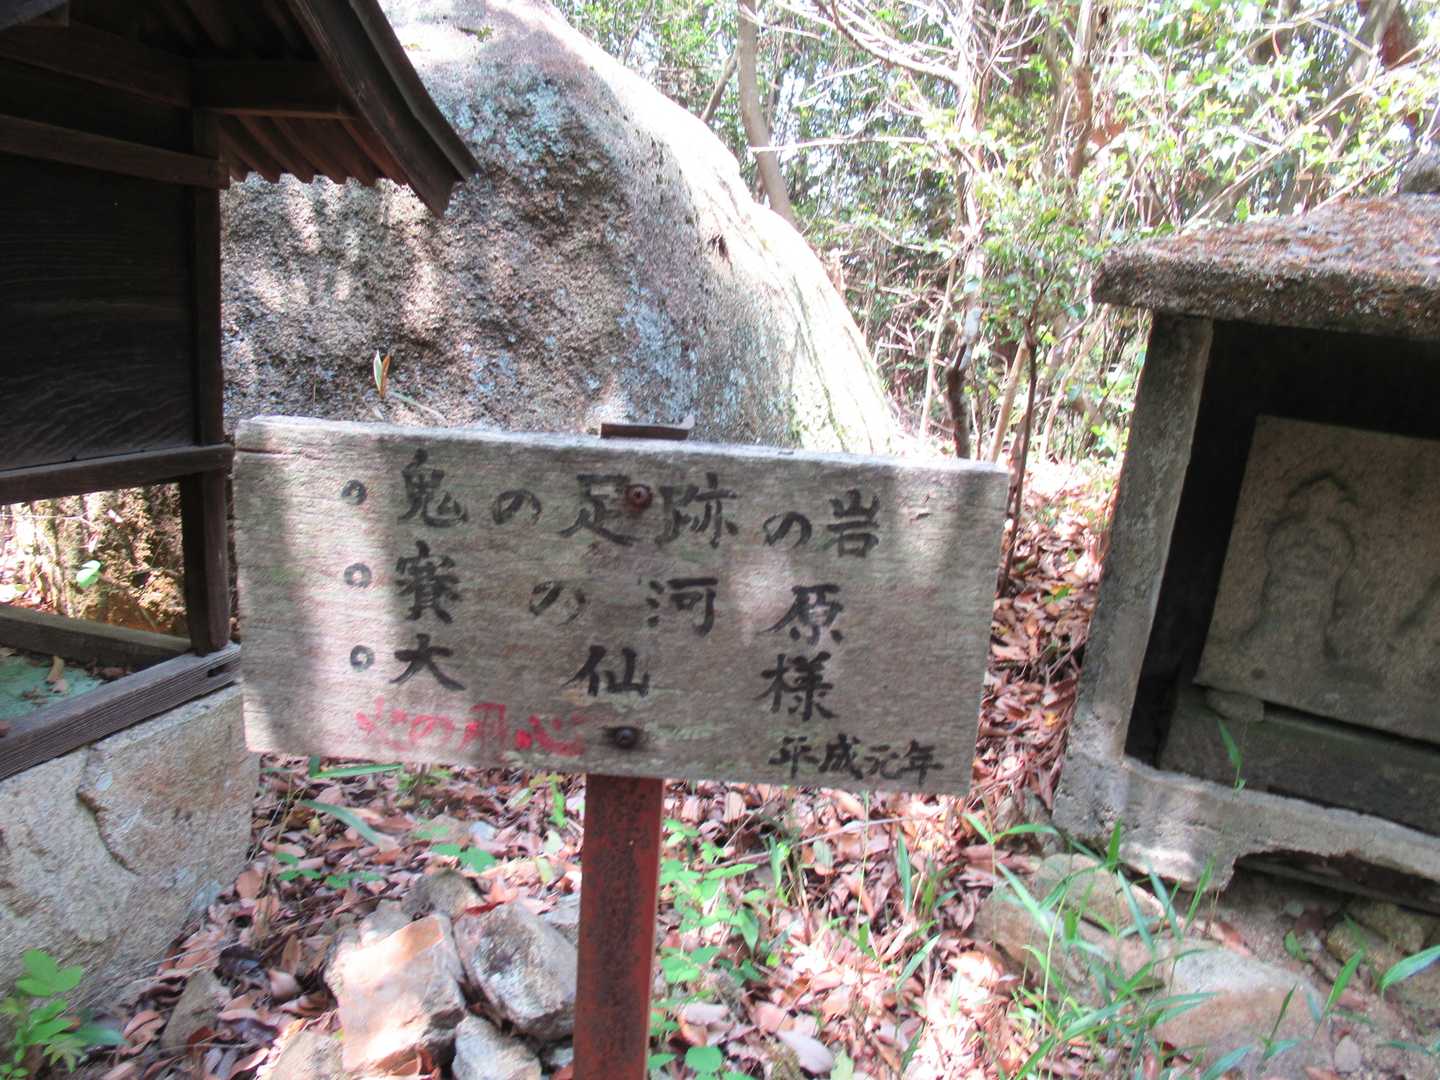 。鬼の足跡の岩
。賽の河原
。大仙様
心の用心
平成元年